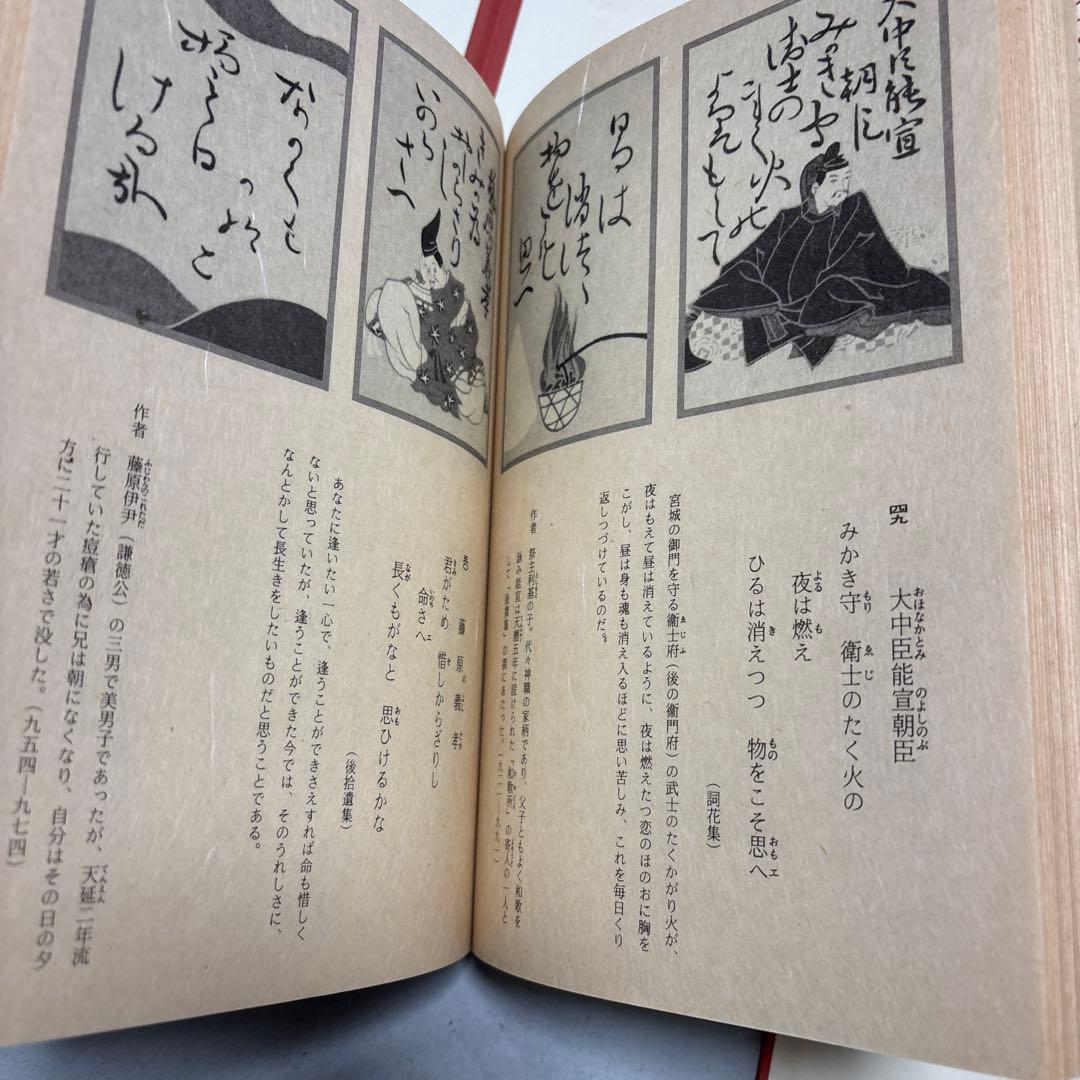 大中臣能宣
朝臣
みかき守
衛士の
たく火の
よるはもえて
昼は
消つゝ
物をこそ
思へ
四九　大中臣能宣朝臣
みかき守　衛士のたく火の
夜は燃え
ひるは消えつつ　物をこそ思へ
(詞花集)
宮城の御門を守る衛士府(後の衛門府)の武士のたくかがり火が、
夜はもえて昼は消えているように、夜は燃えたつ恋のほのおに胸を
こがし、昼は身も魂も消え入るほどに思い苦しみ、これを毎日くり
返しつづけているのだ。
作者　祭主利基の子。代々神職の家柄であり、父子ともよく和歌を
詠み能宣は天暦五年に設けられた「和歌所」の寄人の一人と
して「後撰集」の撰にあたった。(九二一―九九一)
きみかため
おしからさりし
いのちさへ
なかくも
かなと
おもひ
ける哉
五〇　藤原の義孝
君がため　惜しからざりし
命さへ
長くもがなと　思ひけるかな
(後拾遺集)
あなたに逢いたい一心で、逢うことができさえすれば命も惜しく
ないと思っていたが、逢うことができた今では、そのうれしさに、
なんとかして長生きをしたいものだと思うことである。
作者　藤原伊尹(謙徳公)の三男で美男子であったが、天延二年流
行していた痘瘡の為に兄は朝になくなり、自分はその日の夕
方に二十一才の若さで没した。(九五四―九七四)